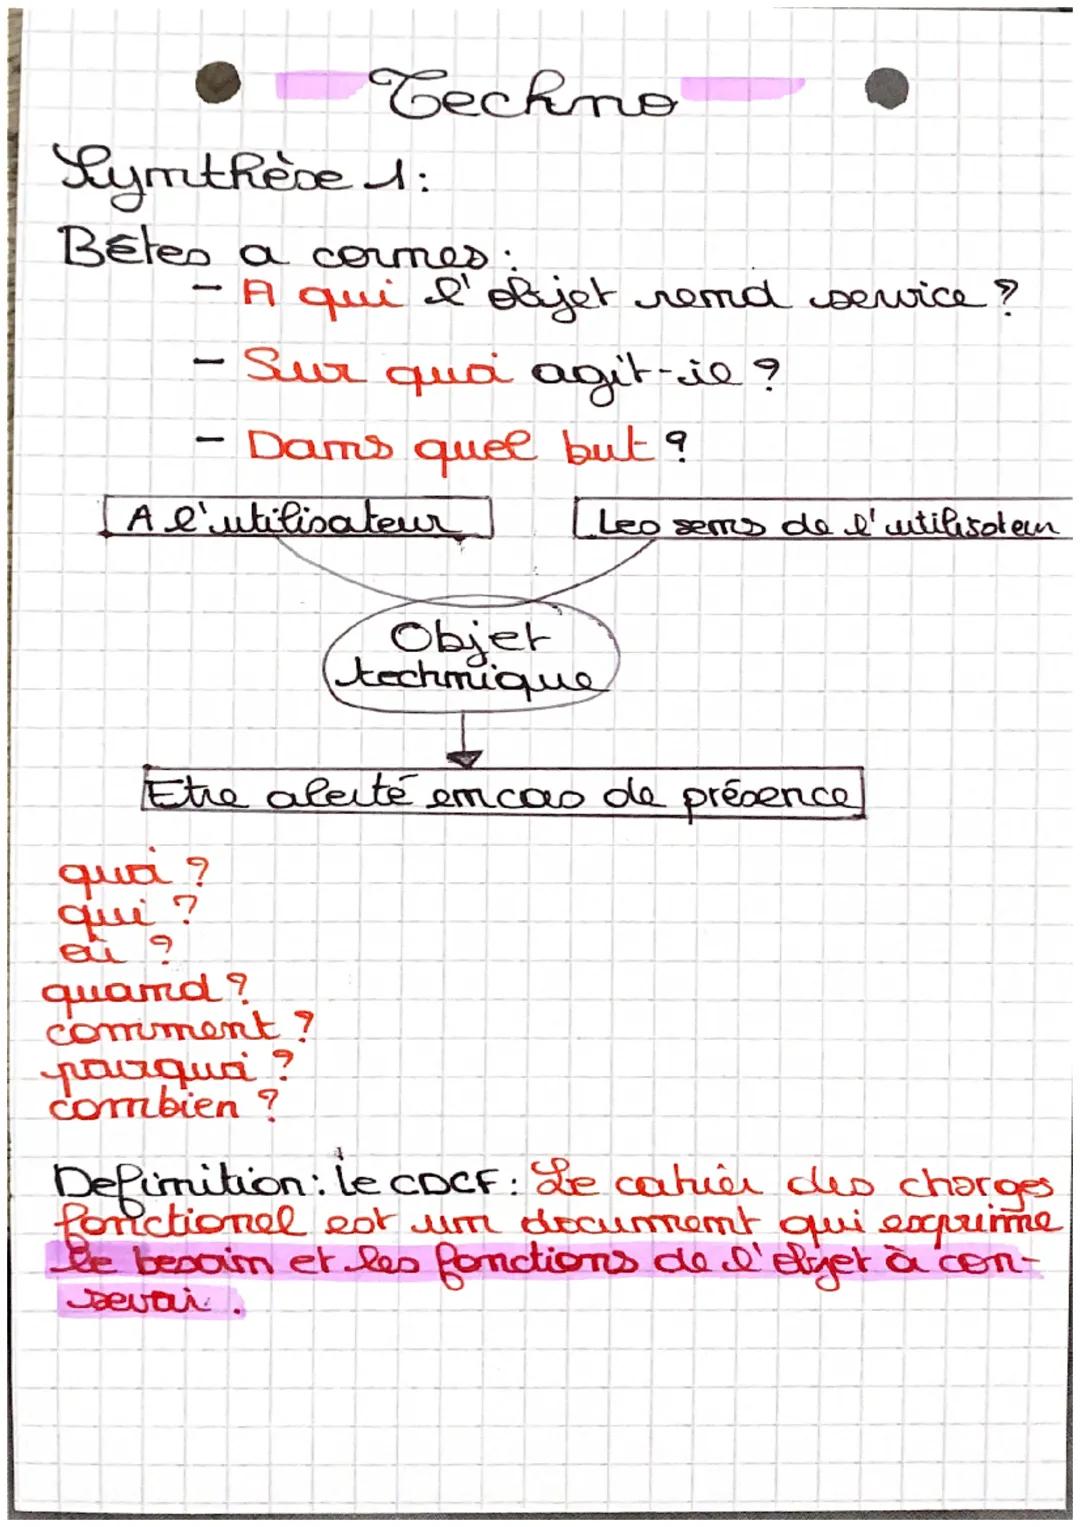 Techno
Synthèse 1:
Bêtes a cornes:
- A qui l'objet rend service ?
- Sur quoi agit-il ?
- Dans quel but ?
A l'utilisateur
Les sens de l'utilisateur
Objet
technique
Etre alerté en cas de présence
quoi ?
qui ?
où ?
quand ?
comment ?
pourquoi ?
combien ?
Definition: le CDCF: Le cahier des charges
fonctionel est un document qui exprime
le besoin et les fonctions de l'objet à con-
sevoir.